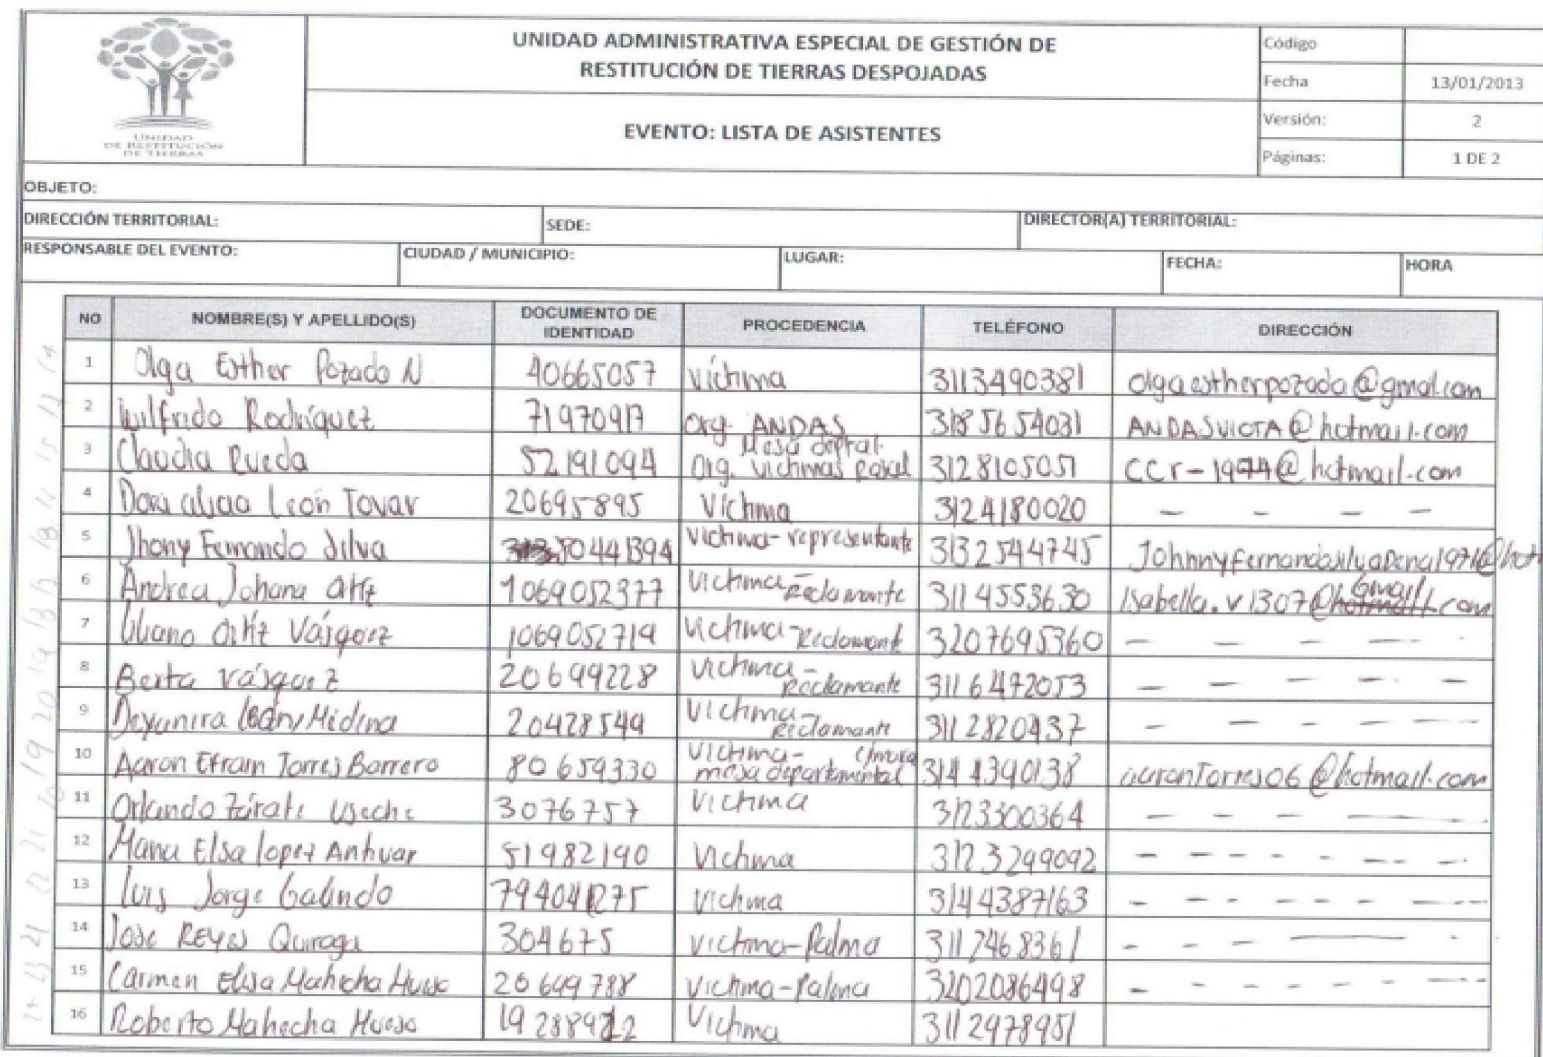 UNIDAD ADMINISTRATIVA ESPECIAL DE GESTIÓN DE
RESTITUCIÓN DE TIERRAS DESPOJADAS
EVENTO: LISTA DE ASISTENTES
Código
Fecha 13/01/2013
Versión: 2
Páginas: 1 DE 2
UNIDAD
DE RESTITUCIÓN
DE TIERRAS
OBJETO:
DIRECCIÓN TERRITORIAL: SEDE: DIRECTOR(A) TERRITORIAL:
RESPONSABLE DEL EVENTO: CIUDAD / MUNICIPIO: LUGAR: FECHA: HORA
NO NOMBRE(S) Y APELLIDO(S) DOCUMENTO DE IDENTIDAD PROCEDENCIA TELÉFONO DIRECCIÓN
1 Olga Esther Pozado N 40665057 víctima 3113490381 olgaestherpozada@gmal.com
2 Wilfrido Rodríguez 71970917 Org. ANDAS 3185654031 ANDASVIOTA@hotmail.com
3 Claudia Rueda 52191094 Mesa deptal. Org. victimas Rosal 3128105051 CCr-1974@hotmail.com
4 Dora alicia León Tovar 20695895 Víctima 3124180020 - - - -
5 Jhony Fernando Silva 80441394 Victima-representante 3132544745
6 Andrea Johana Ortiz 1069052377 Victima-Reclamante 3114553630 Isabella.v1307@Gmail.com
7 Liliana Ortíz Vásquez 1069052719 Victima-Reclamante 3207695360 - - - - -
8 Berta vásquez 20699228 Victima-Reclamante 3116472053 - - - - -
9 Deyanira León Medina 20428549 Victima-Reclamante 3112820437 - - - - -
10 Aaron Efrain Torres Barrero 80659330 Victima- mesa departamental 3144390138 aaronTorres06@hotmail.com
11 Orlando Zárate Useche 3076757 Victima 3123300364 - - - - -
12 Maria Elsa lopez Anhuar 51982190 Victima 3123299092 - - - - - - -
13 Luis Jorge Galindo 794041275 Victima 3144387163 - - - - - - -
14 Jose REYES Quiroga 304675 victima-Palma 3112468361 - - - - -
15 Carmen Elisa Mahecha Hueso 20699788 Victima-Palma 3202086498 - - - - - - -
16 Roberto Mahecha Hueso Victima 3112978951